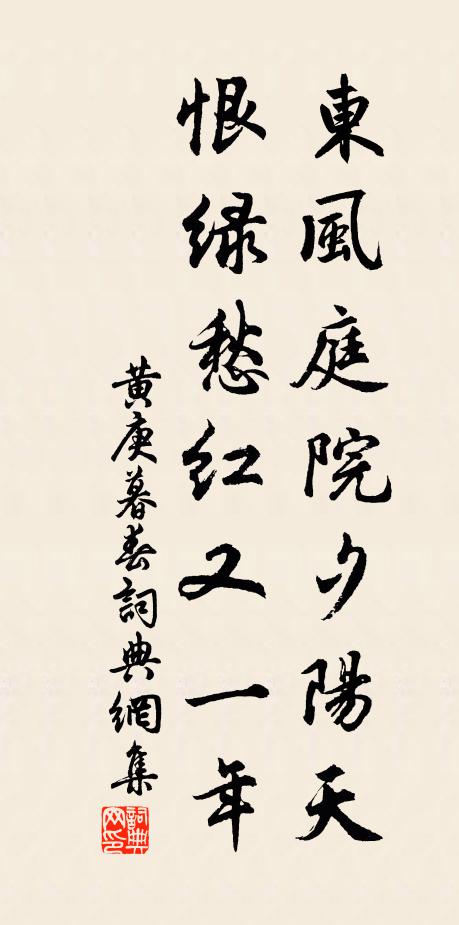 東風庭院夕陽天
恨緑愁紅又一年
黄庚暮春詞典網集
詞典网印